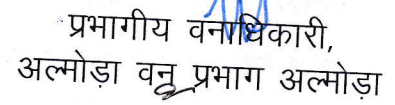 प्रभागीय वनाधिकारी,
अल्मोड़ा वन प्रभाग अल्मोड़ा